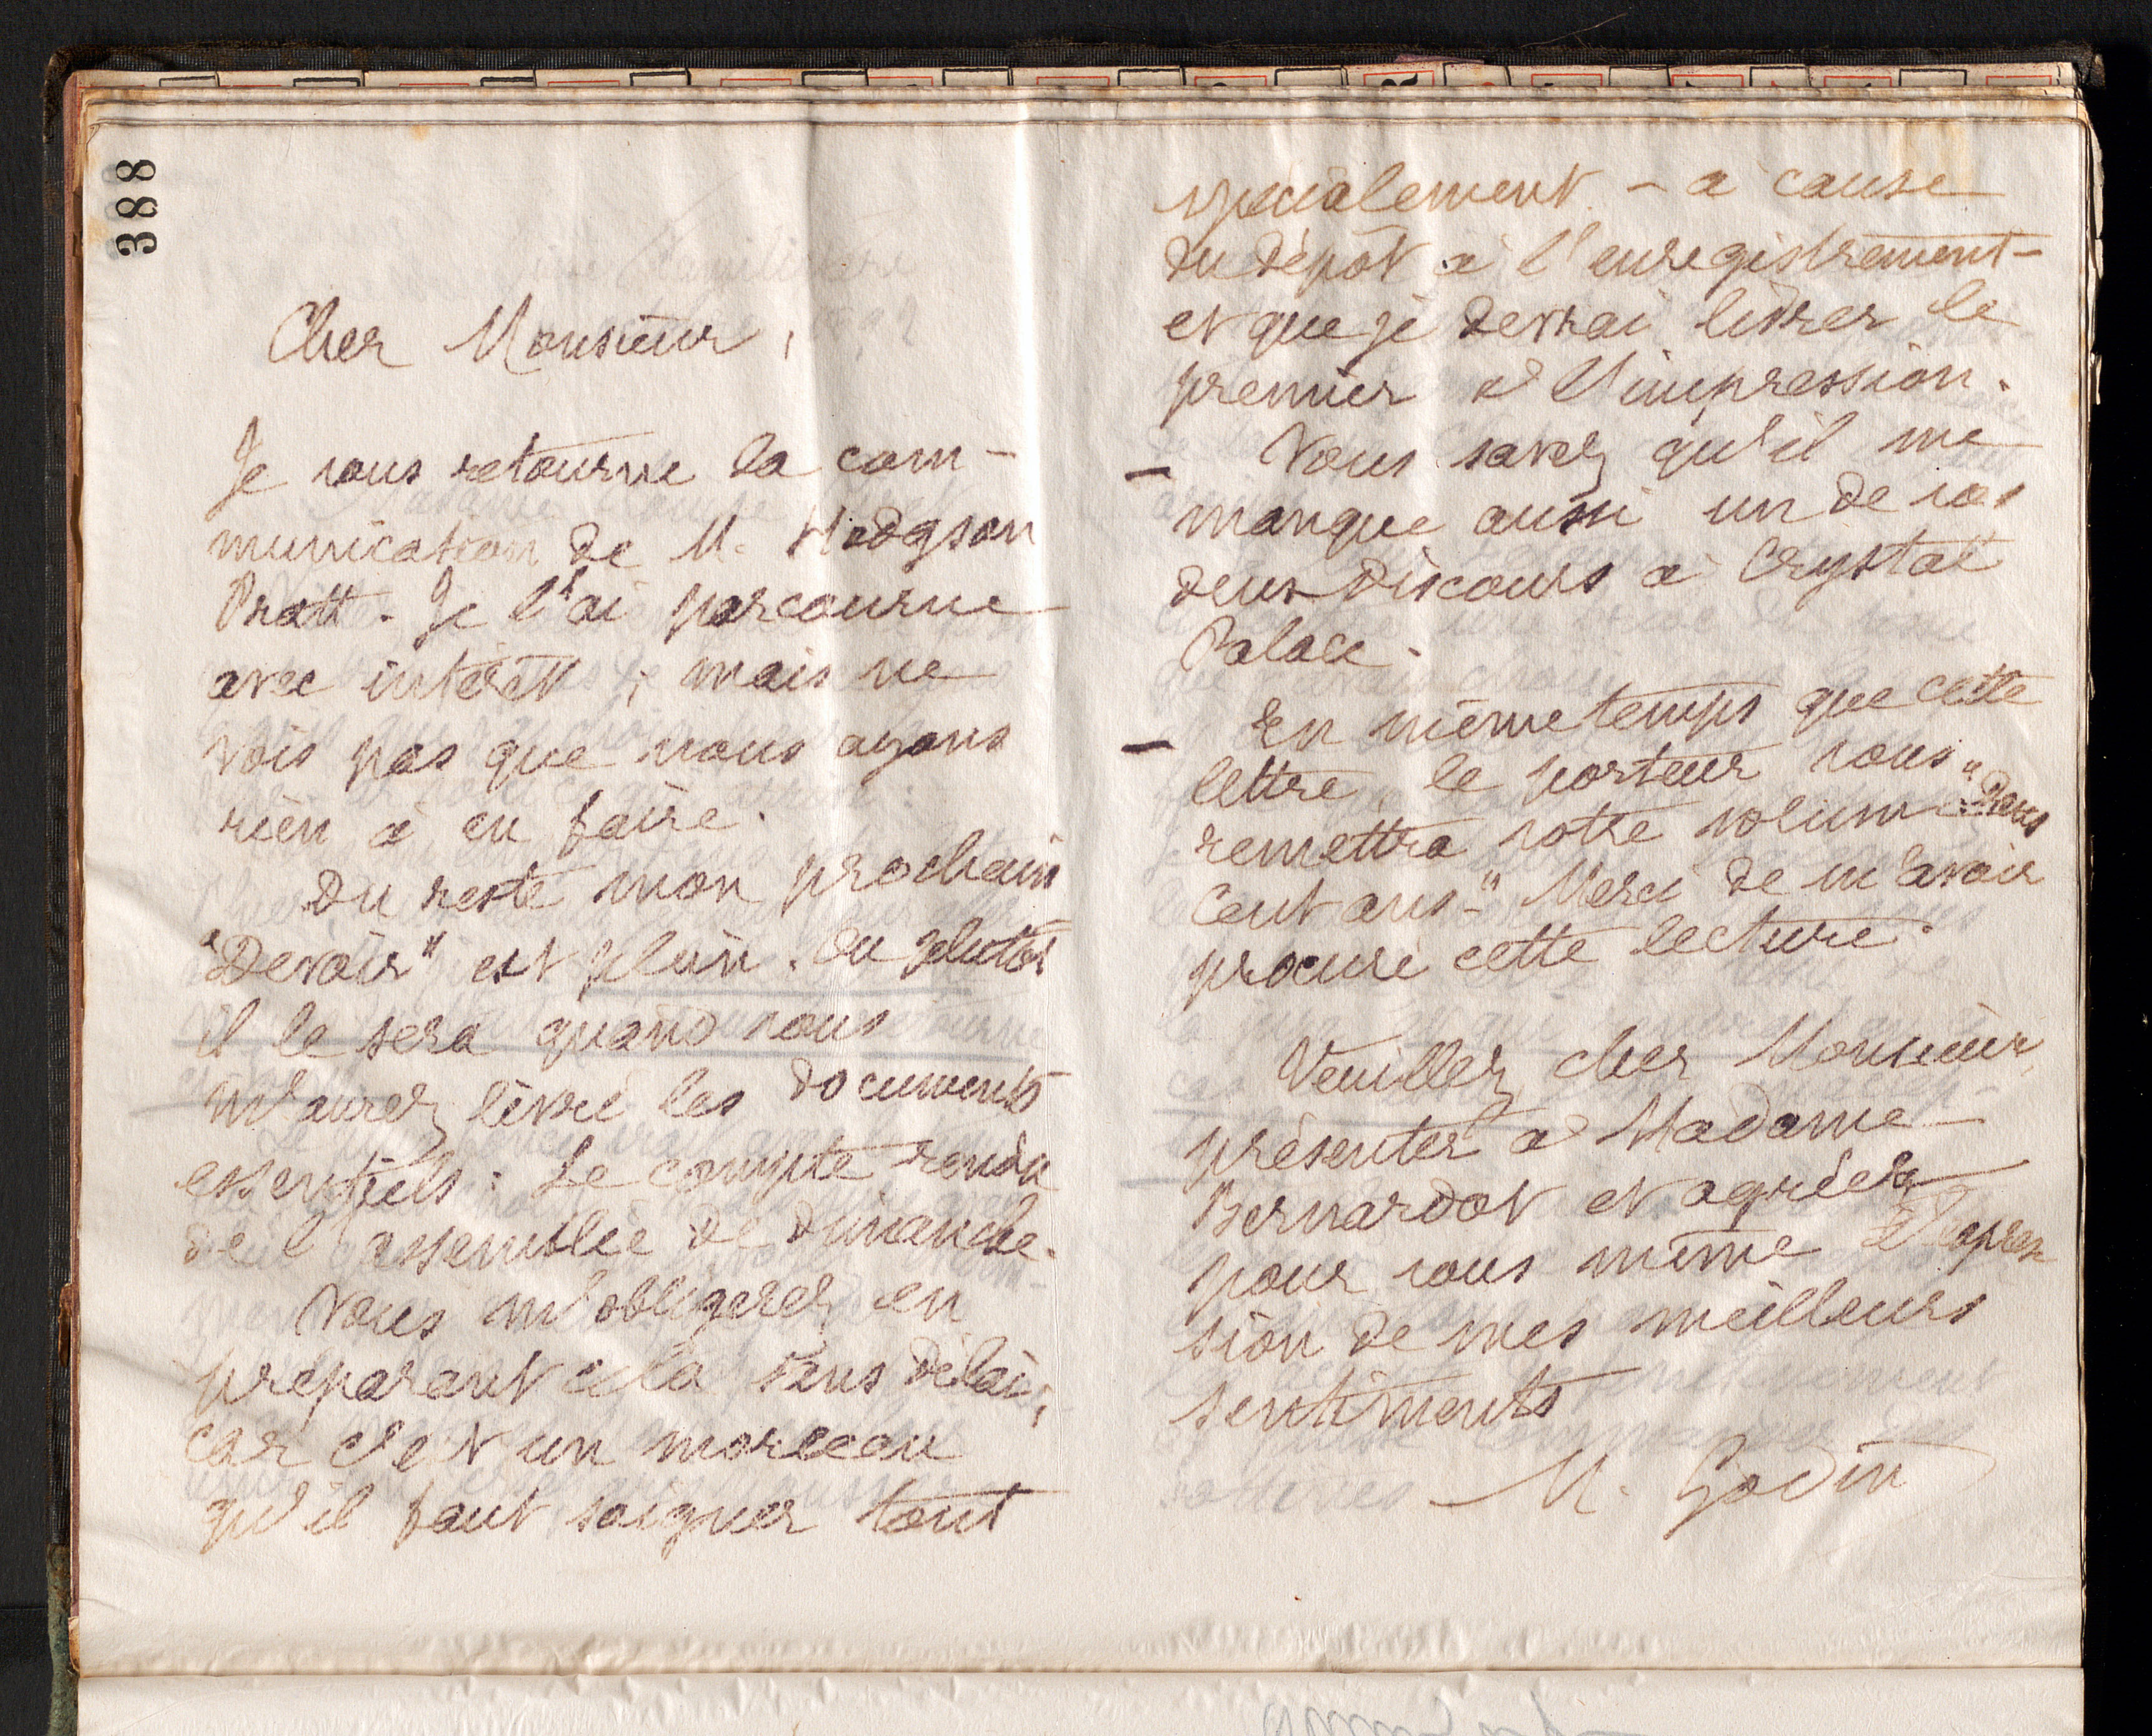 388
Cher Monsieur,
Je vous retourne la com-
munication de M. Hodgson
Pratt. Je l'ai parcourue
avec intérêt ; mais ne
vois pas que nous ayons
rien à en faire.
Du reste mon prochain
"Devoir" est plein. Ou plutôt
il le sera quand vous
m'aurez livré les documents
essentiels : Le compte rendu
de l'assemblée de dimanche.
Vous m'obligerez en
préparant cela sans délai,
car c'est un morceau
qu'il faut soigner tout
spécialement - à cause
du dépôt à l'enregistrement -
et que je devrai livrer le
premier à l'impression.
- Vous savez qu'il me
manque aussi un de vos
deux discours à Crystal
Palace.
- En même temps que cette
lettre, le porteur vous
remettra votre volume "Dans
Cent ans". Merci de m'avoir
procuré cette lecture.
Veuillez, cher Monsieur,
présenter à Madame
Bernardot et agréer
pour vous même l'expres-
sion de mes meilleurs
sentiments
M. Godin